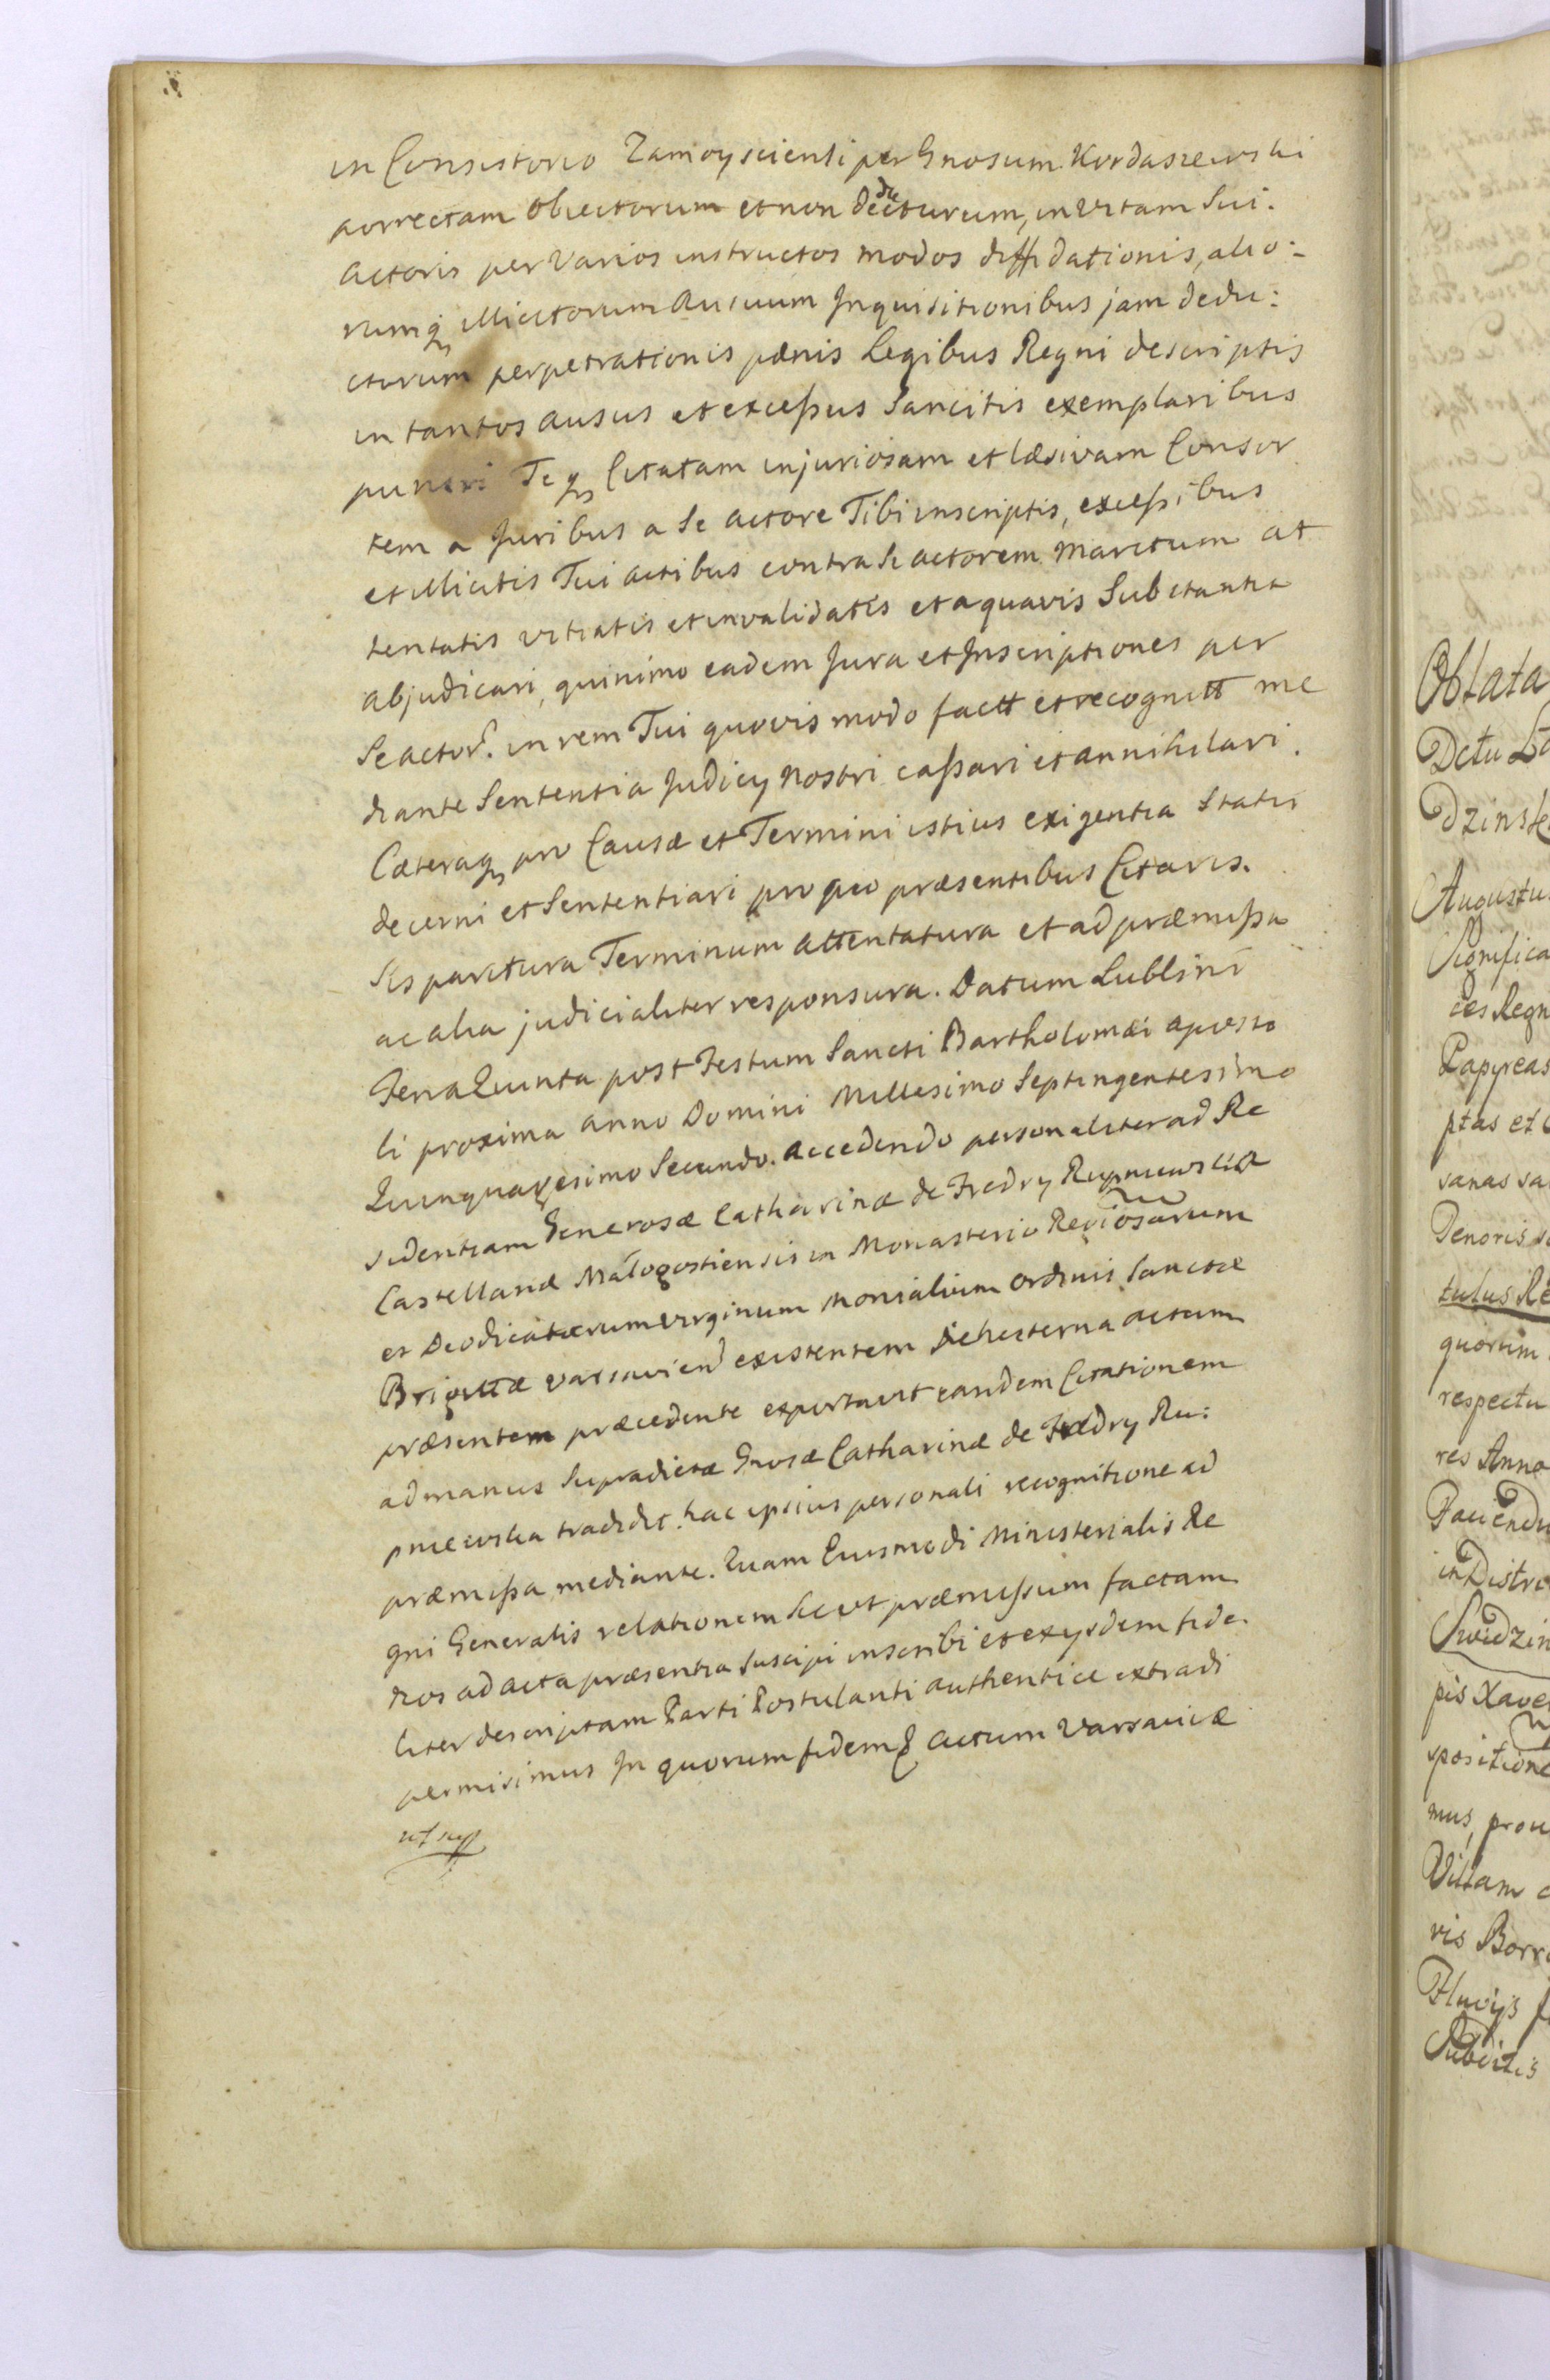 in Consistorio Zamoysciensi per Gnosum Kordaszewski
porrectam Obiectorum et non deducturum, in vitam Sui.
actoris per varios instructos modos diffidationis, alio:
rumq illicitorum Ausuum Inquisitionibus jam dedu:
ctorum perpetrationis pænis Legibus Regni descriptis
in tantos ausus et excessus Sancitis exemplaribus
puniri Teq Citatam injuriosam et læsivam Consor
tem a Juribus a Se actore Tibi inscriptis, excessibus
et illicitis Tui actibus contra Se actorem Maritum at
tentatis vitiatis et invalidatis et a quavis Substantia
abjudicari, quinimo eadem Jura et Inscriptiones per
Se actor. in rem Tui quovis modo factt et recognitt me
diante Sententia Judicy Nostri cassari et annihilari.
Cæteraq pro Causæ et Termini istius exigentia Statui
decerni et Sententiari pro quo præsentibus Citaris.
Sis paritura Terminum attentatura et ad præmissa
ac alia judicialiter responsura. Datum Lublini
Feria Quinta post Festum Sancti Bartholomæi aposto
li proxima anno Domini Millesimo Septingentesimo
Quinquagesimo Secundo. accedendo personaliter ad Re
sidentiam Generosæ Catharinæ de Fredry Rupniewska
Castellanæ Małogostiensis in Monasterio Reliosarum
et Deodicatarum virginum Monialium Ordinis Sanctæ
Brigittæ varsavien existentem Die hesterna actum
præsentem præcedente exportavit eandem Citationem
ad manus Supradictæ Gnosæ Catharinæ de Fredry Ru:
pniewska tradidit. hac ipsius personali recognitione ad
præmissa mediante. Quam Eiusmodi Ministerialis Re
gni Generalis relationem Sic ut præmissum factam
Nos ad acta præsentia suscipi inscribi et ex ijsdem fide.
liter descriptam Parti Postulanti authentice extradi
permisimus In quorum fidem & actum Varsaviæ
ut sup
Oblata
Dctu
dzinsk
Augustu
Significa
ces Regn
Papyreas
ptas et
sanas sa
Tenoris
tulus Re
quorum
respectu
res Anno
Faciendu
in Distri
Swidzin
pis Xave
spositione
mus, prou
Villam
vis Borr
Fluvijs
Subditis